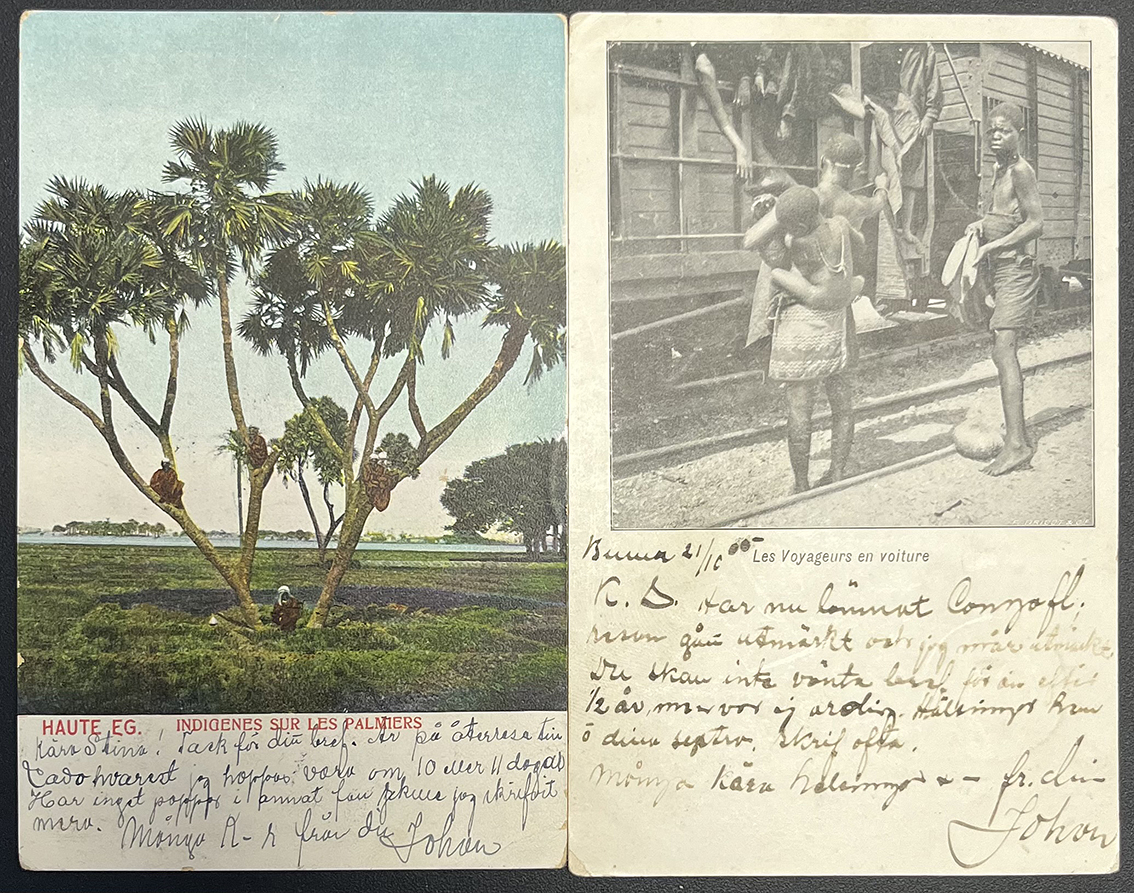 HAUTE EG. INDIGENES SUR LES PALMIERS
Kära Stina! Tack för ditt bref. Är på återresa till
Lado hvarest jag hoppas vara om 10 eller 11 dagar
Har inget papper i annat fall skulle jag skrifvit
mera.
Många K-r från din Johan
Les Voyageurs en voiture
Boma 21/10 05
K. S. Har nu lämnat Congofl.
resan går utmärkt och jag mår utmärkt.
Du skall inte vänta bref förän efter
1/2 år, men var ej orolig. Hälsningar hem
o dina systrar. Skrif ofta.
Många kära hälsningar fr. din
Johan